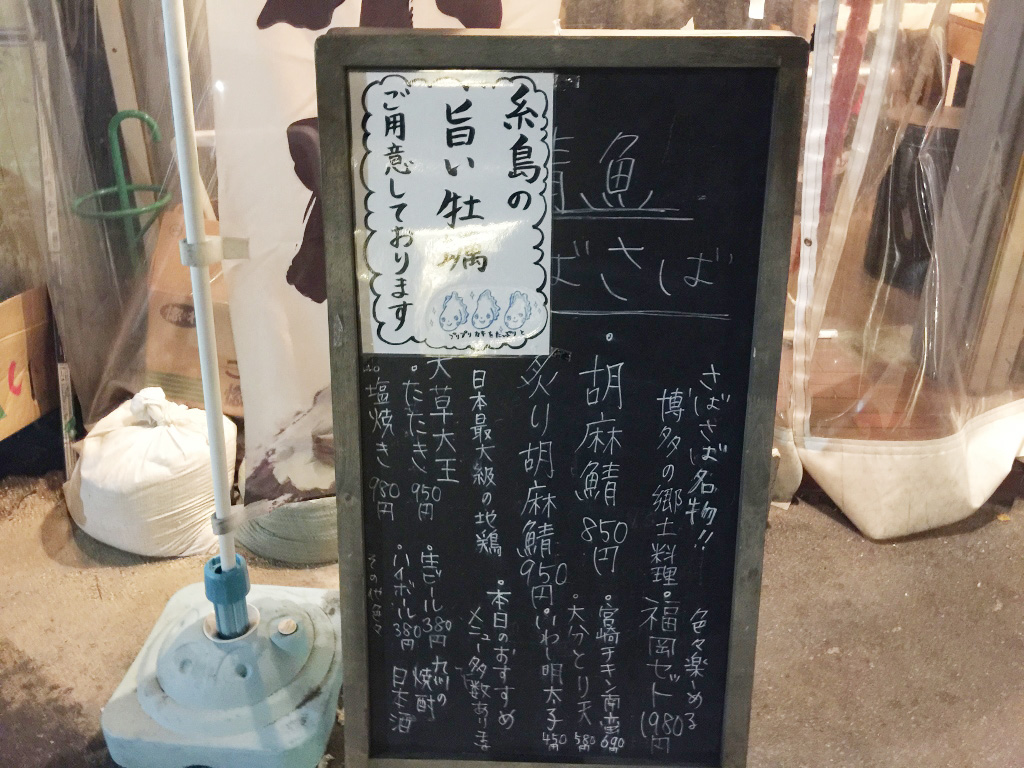 糸島の
旨い牡蠣
ご用意しております
プリプリカキをたっぷりと
魚
ばさば
さばさば名物!!
博多の郷土料理
・胡麻鯖 850円
炙り胡麻鯖 950円
日本最大級の地鶏
天草大王
・たたき 950円
塩焼き 980円
色々楽しめる
・福岡セット 1980円
・宮崎チキン南蛮 690
・大分とり天 580円
・いわし明太子 450円
・本日のおすすめ
メニュー多数あります
九州の
焼酎
日本酒
・生ビール 380円
・ハイボール 380円
その他色々